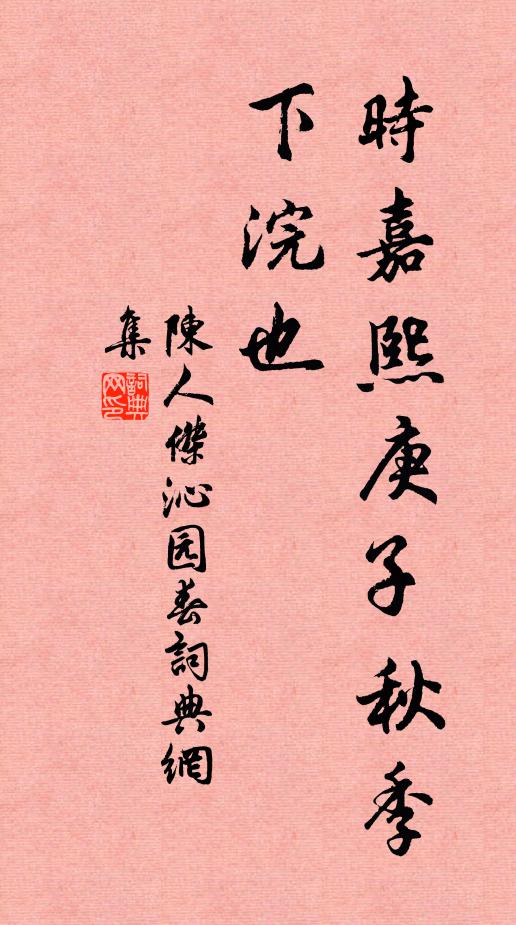 時嘉熙庚子秋季
下浣也
陳人傑沁园春詞典網
集
詞典
网印